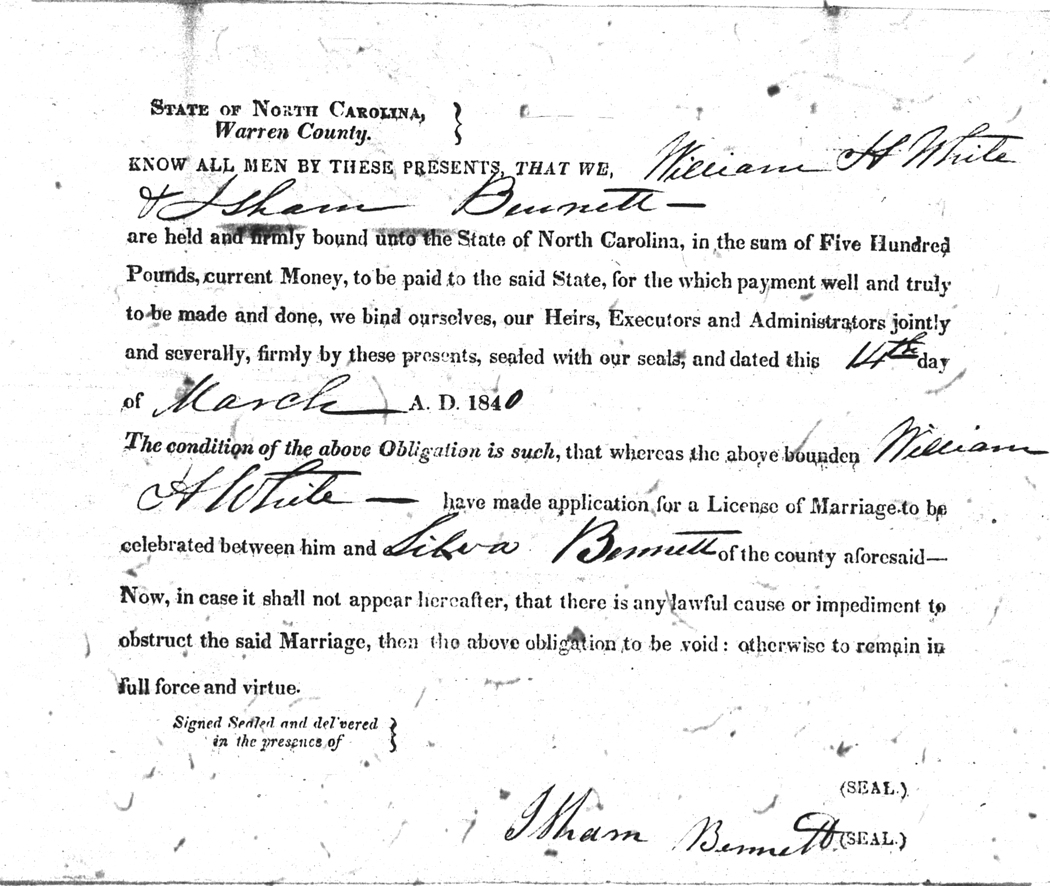 STATE OF NORTH CAROLINA, }
Warren County.
KNOW ALL MEN BY THESE PRESENTS, THAT WE, William H White
& Isham Bennett —
are held and firmly bound unto the State of North Carolina, in the sum of Five Hundred
Pounds, current Money, to be paid to the said State, for the which payment well and truly
to be made and done, we bind ourselves, our Heirs, Executors and Administrators jointly
and severally, firmly by these presents, sealed with our seals, and dated this 14th day
of March A. D. 1840
The condition of the above Obligation is such, that whereas the above bounden William
H White — have made application for a License of Marriage to be
celebrated between him and Silva Bennett of the county aforesaid—
Now, in case it shall not appear hereafter, that there is any lawful cause or impediment to
obstruct the said Marriage, then the above obligation to be void: otherwise to remain in
full force and virtue.
Signed Sealed and delivered }
in the presence of
(SEAL.)
Isham Bennett (SEAL.)